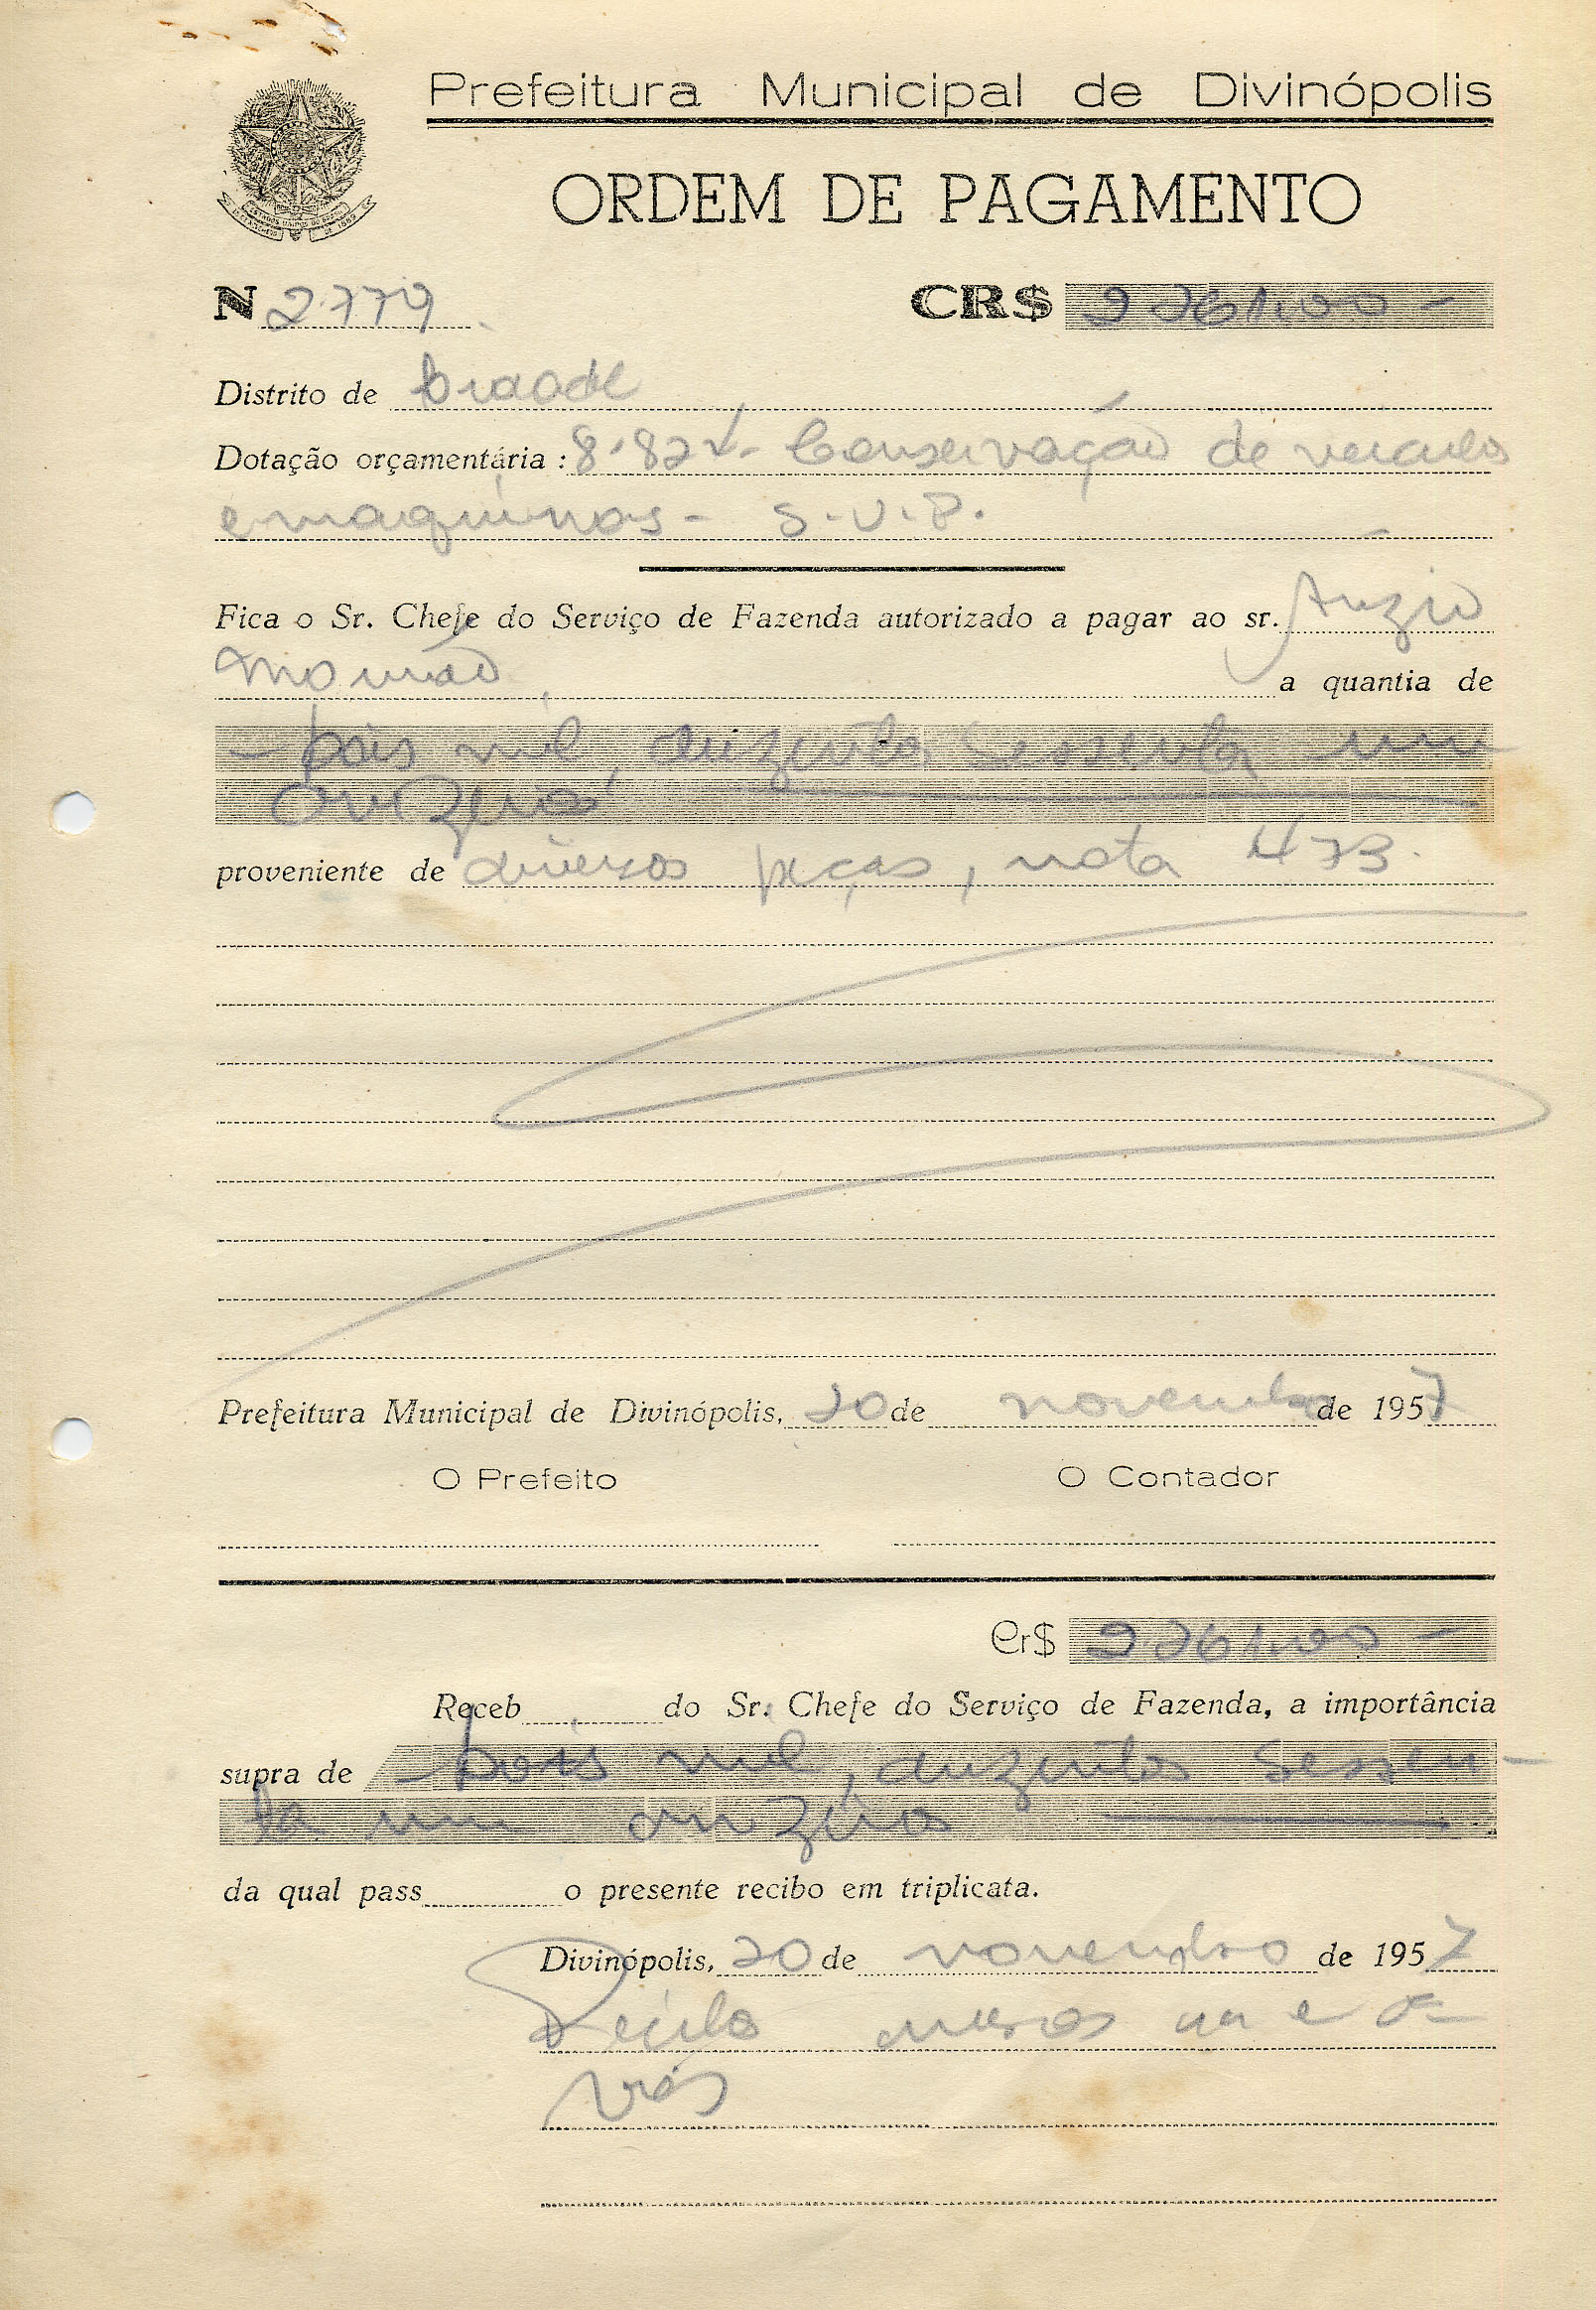 Prefeitura Municipal de Divinópolis
ORDEM DE PAGAMENTO
N 2779 CR$ 2261,00 -
Distrito de
Dotação orçamentária: 8.82 - Conservação de veiculos
e maquinas - S.V.P.
Fica o Sr. Chefe do Serviço de Fazenda autorizado a pagar ao sr.
a quantia de
- Dois mil, duzentos sessenta um
cruzeiros
proveniente de diversos peças, nota 473.
Prefeitura Municipal de Divinópolis, 20 de novembro de 1957
O Prefeito O Contador
Cr$ 2261,00 -
Receb do Sr. Chefe do Serviço de Fazenda, a importância
supra de - Dois mil, duzentos sessen-
ta um cruzeiros
da qual pass o presente recibo em triplicata.
Divinópolis, 20 de novembro de 1957
Recibo